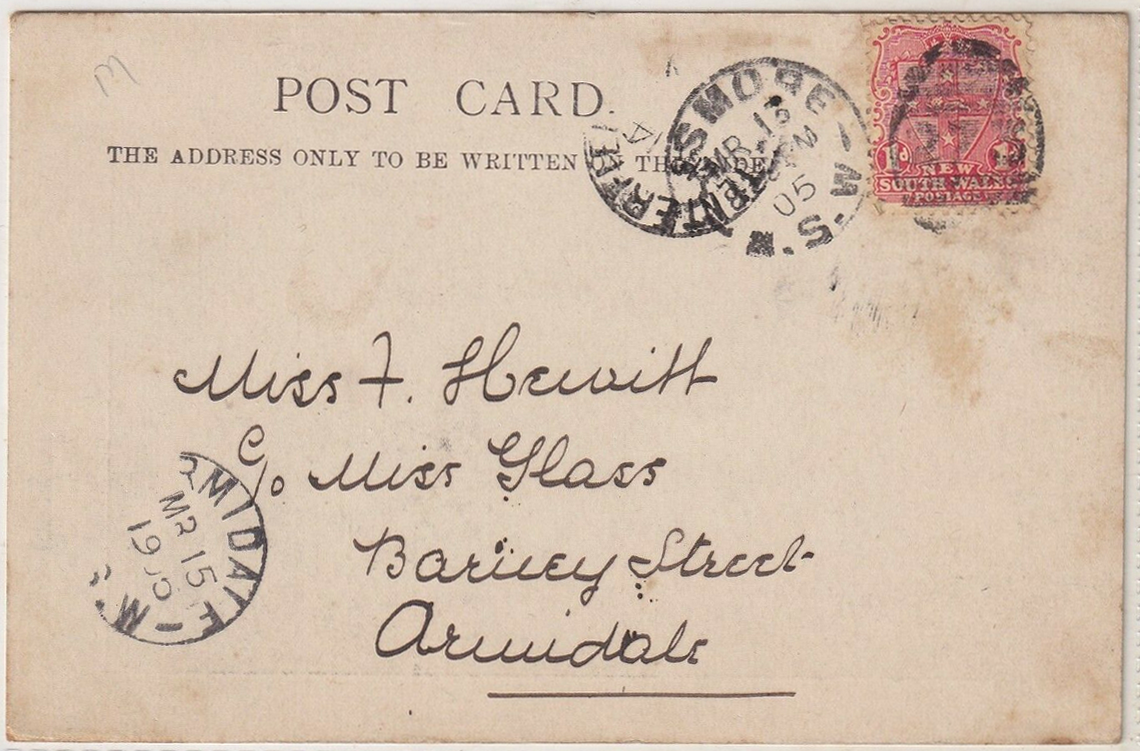 M
POST CARD.
THE ADDRESS ONLY TO BE WRITTEN ON THIS SIDE
ISMORE – W.S.N
MR 13
PM
05
TENTERFI
A
1d 1d
NEW
SOUTH WALES
POSTAGE
Miss F. Hewitt
C/o Miss Glass
Barney Street
Armidale
RMIDALE – W.S.
MR 15
1905